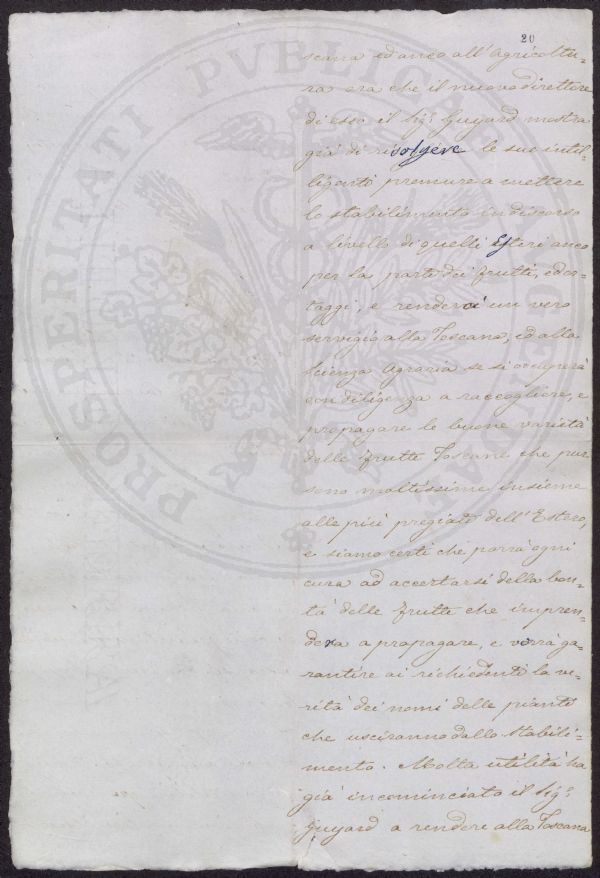 20
scana ed anco all'Agricoltu-
ra ora che il nuovo direttore
di esso il Sig.r Guyard mostra
già di rivolgere le sue intel-
ligenti premure a mettere
lo stabilimento in discorso
a livello di quelli Esteri anco
per la parte dei frutti, ed or-
taggi, e renderà un vero
servigio alla Toscana, ed alla
Scienza Agraria se si occuperà
con diligenza a raccogliere, e
propagare le buone varietà
delle frutte Toscane che pur
sono moltissime insieme
alle più pregiate dell'Estero,
e siamo certi che porrà ogni
cura ad accertarsi della bon-
tà delle frutte che impren-
derà a propagare, e vorrà ga-
rantire ai richiedenti la ve-
rità dei nomi delle piante
che usciranno dallo Stabili-
mento. Molta utilità ha
già incominciato il Sig.r
Guyard a rendere alla Toscana
PROSPERITATI PUBLICAE AUGENDAE